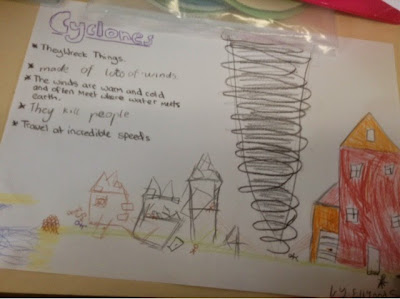 Cyclones
* They Wreck Things.
* made of lots of winds.
* The winds are warm and cold
and often meet where water meets
earth.
* They kill people
* Travel at incredible speeds
by: